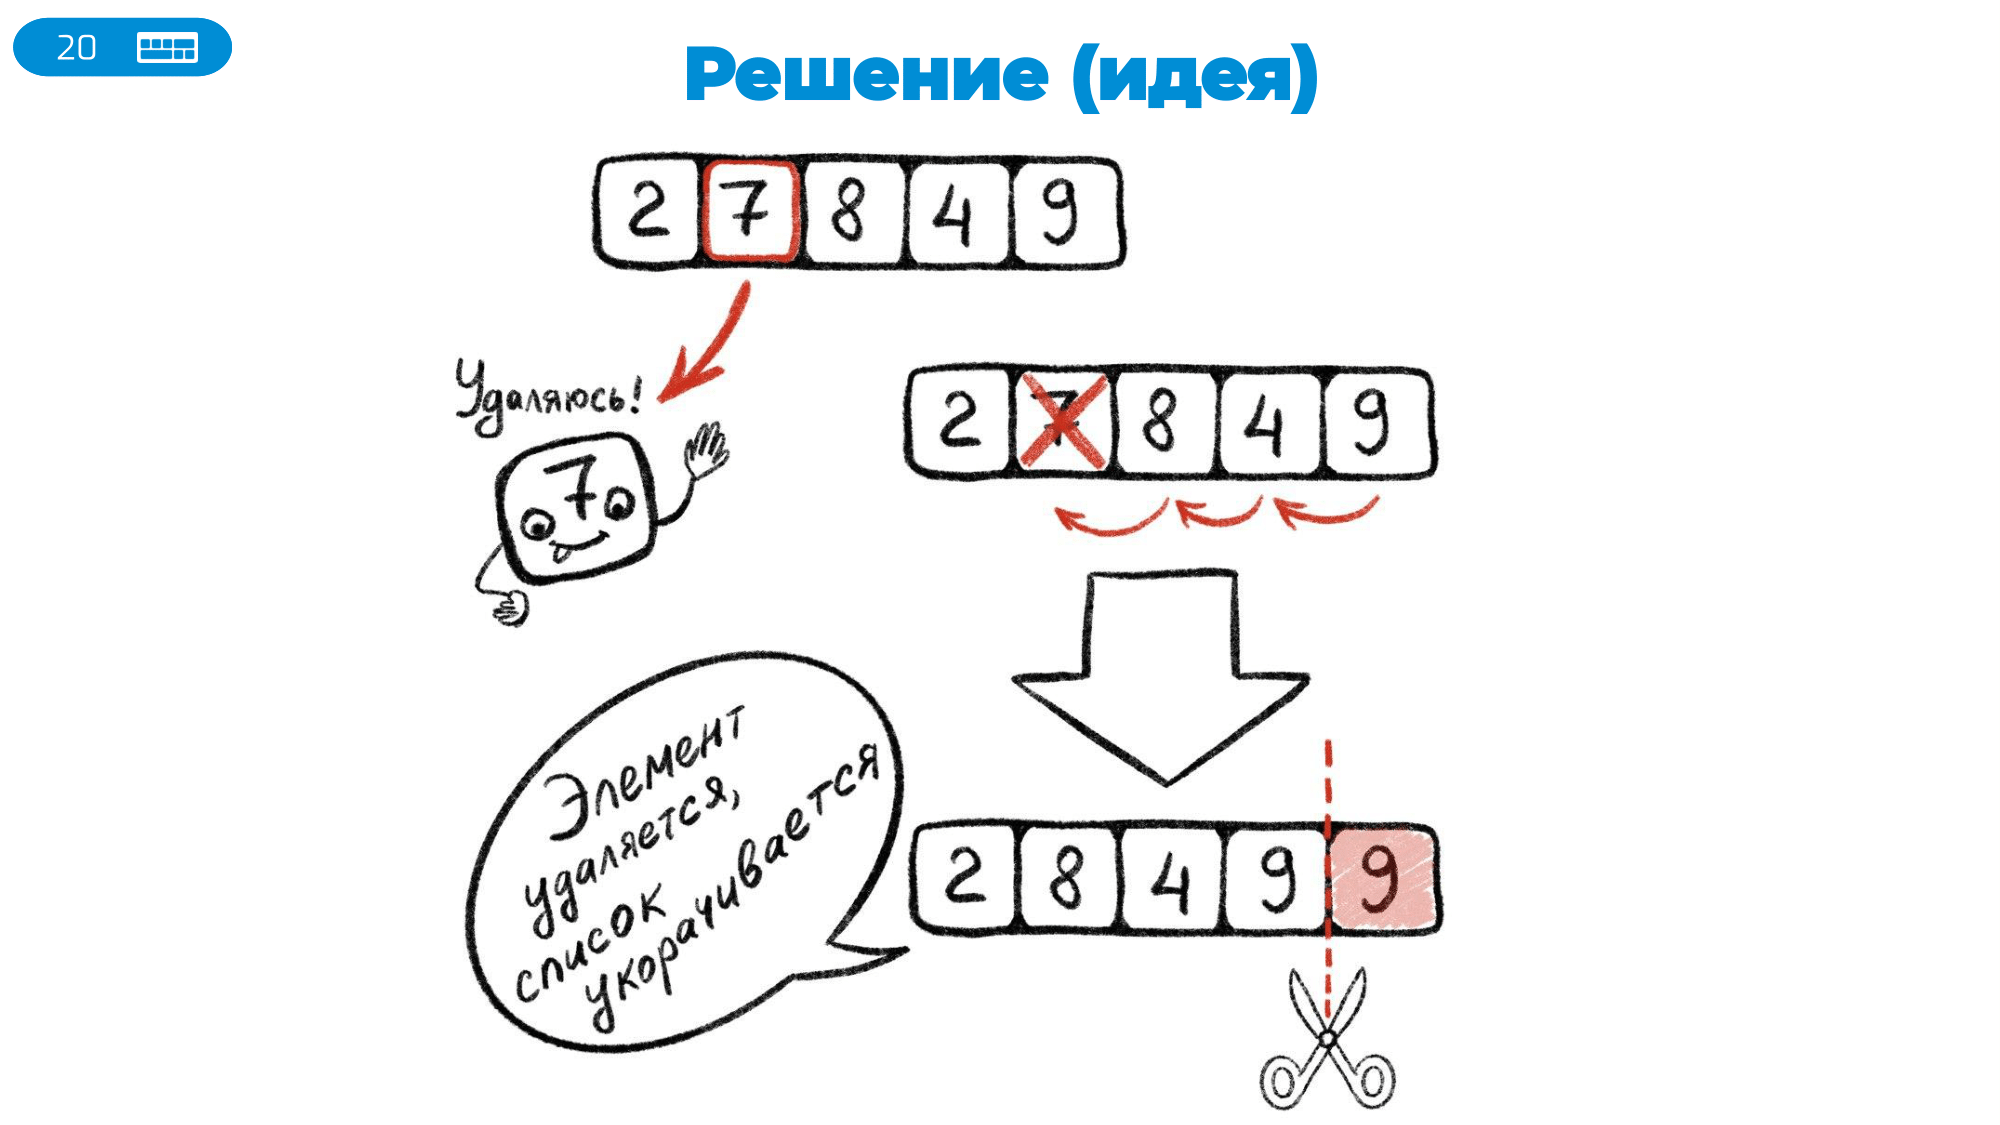 20
Решение (идея)
2 7 8 4 9
Удаляюсь!
7
2 7 8 4 9
Элемент
удаляется,
список
укорачивается
2 8 4 9 9